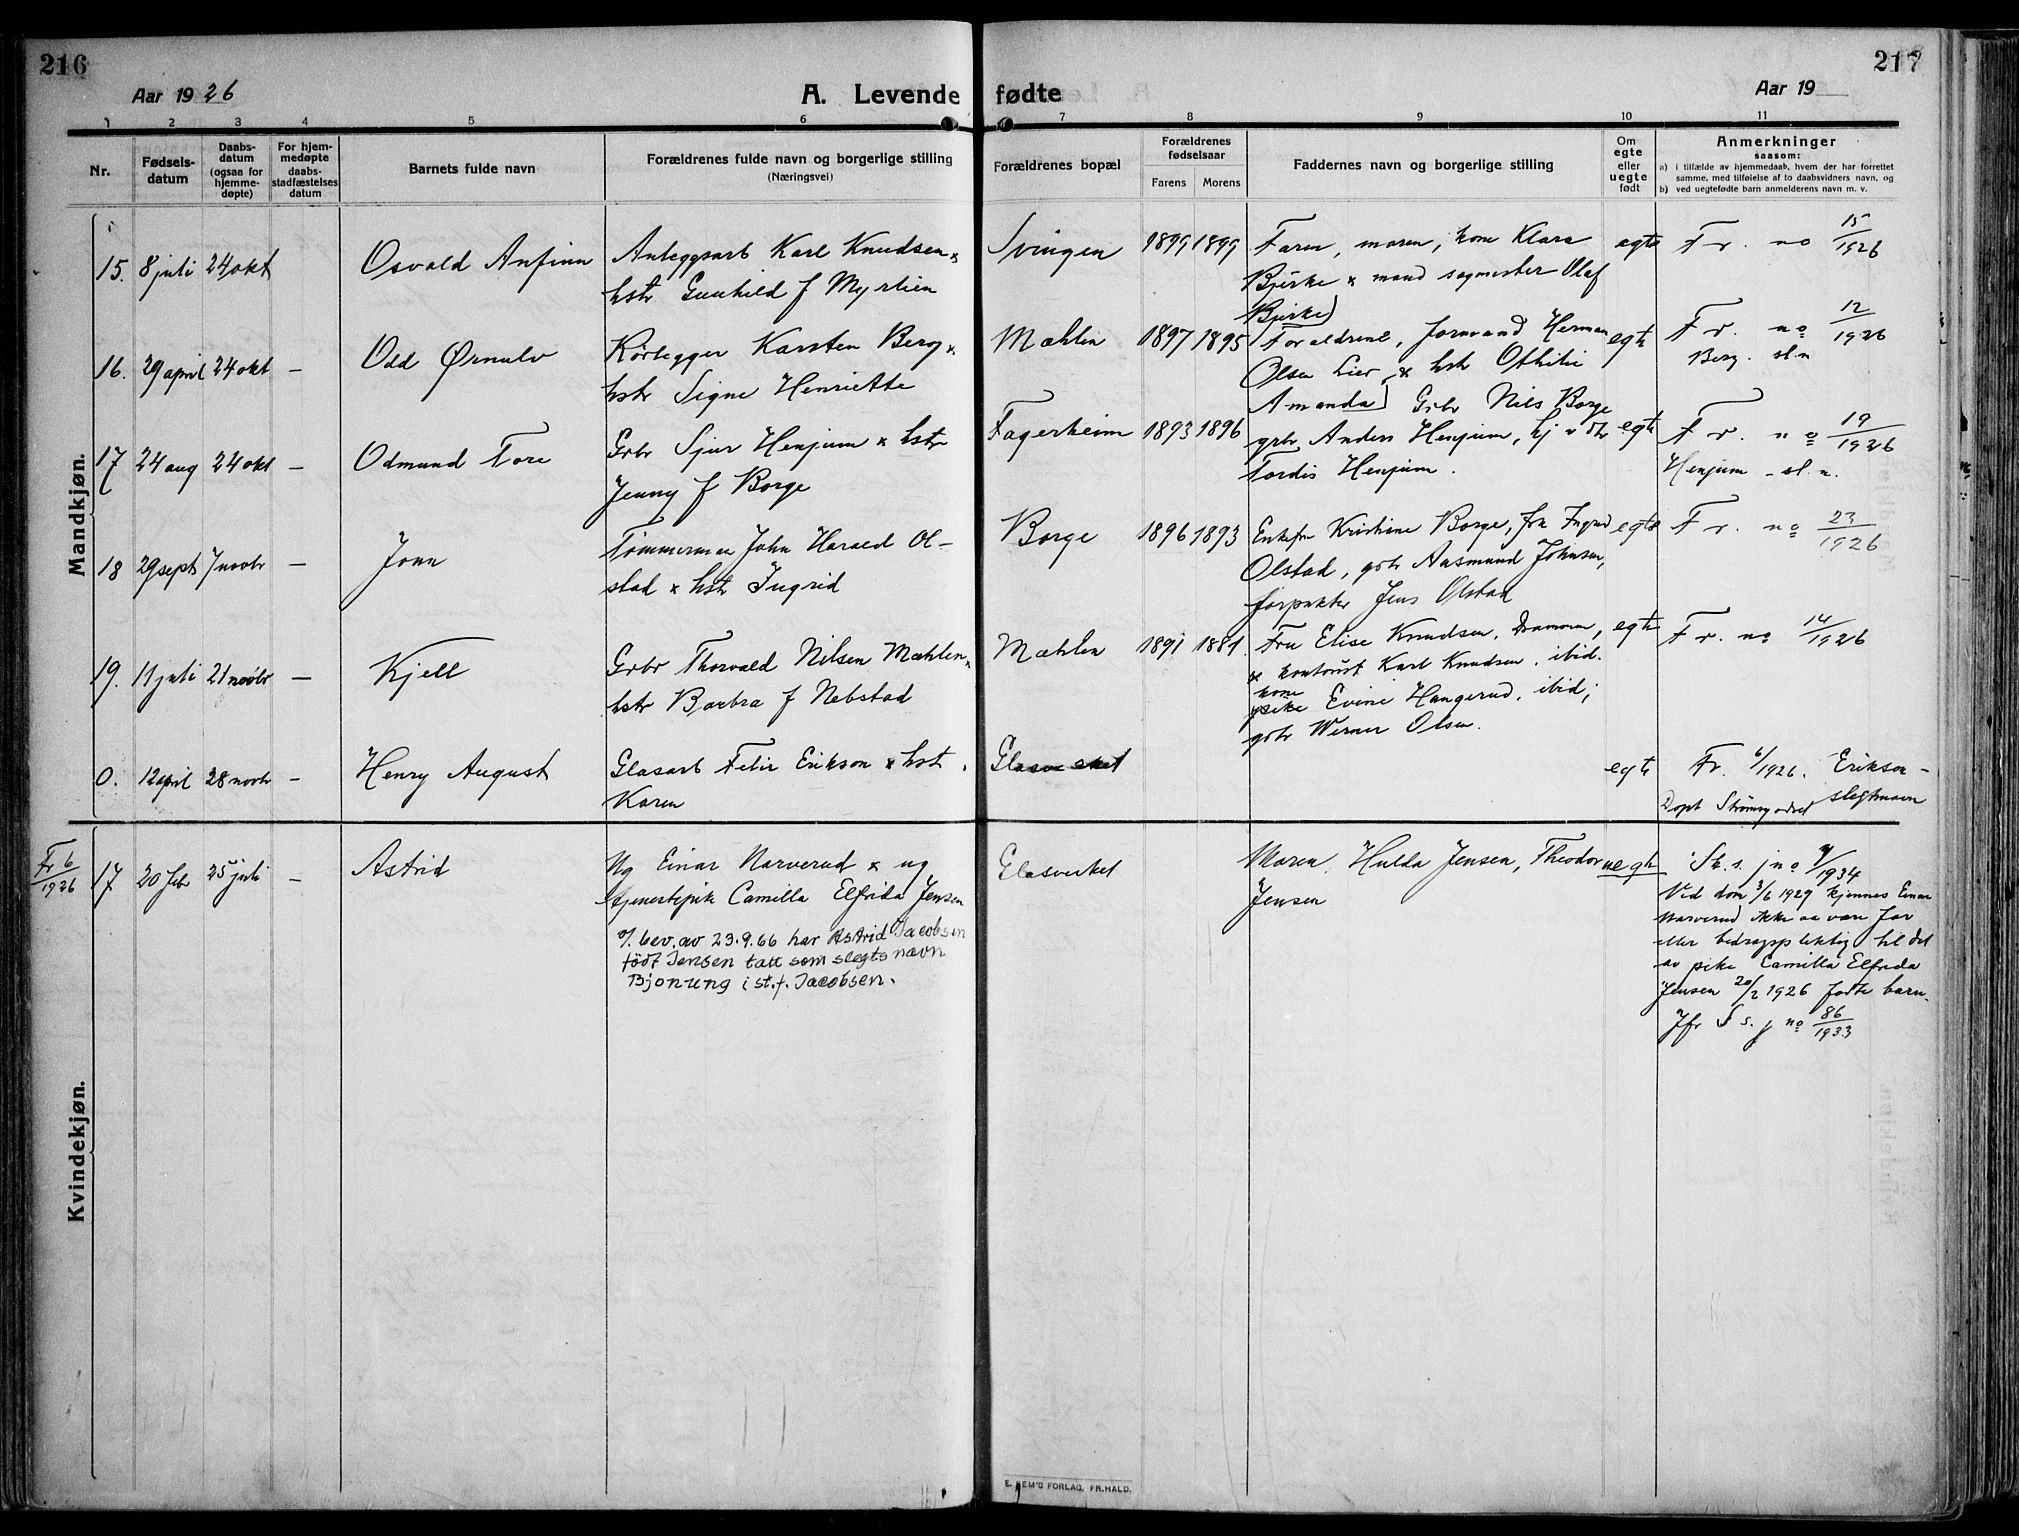 216
217
Aar 1926
A. Levende fødte
Aar 19
1 2 3 4 5 6 7 8 9 10 11
Nr.
Fødsels-
datum
Daabs-
datum
(ogsaa for
hjemme-
døpte)
For hjem-
medøpte
daabs-
stadfæstelses
datum
Barnets fulde navn
Forældrenes fulde navn og borgerlige stilling
(Næringsvei)
Forældrenes bopæl
Forældrenes
fødselsaar
Farens Morens
Faddernes navn og borgerlige stilling
Om
egte
eller
uegte
født
Anmerkninger
saasom:
a) i tilfælde av hjemmedaab, hvem der har forrettet
samme, med tilføielse af to daabsvidners navn, og
b) ved uegtefødte barn anmelderens navn m. v.
Mandkjøn.
15. 8 juli 24 okt Osvald Anfinn Anleggsarb Karl Knudsen x Svingen 1899 1899 Faren, moren, kone Klara egte Fr. no 15/1926
hstr Gunhild f Myrlien Bjerke x mand sagmester Olaf
Bjerke
16. 29 april 24 okt – Odd Ørnulv Rørlegger Karsten Berg x Mæhlen 1897 1895 Forældrene, formand Herman egte Fr. no 12/1926
hstr Signe Henriette Olsen Lier x hstr Othilie Berg. sl.n
Amanda Grbr Nils Borge
17 24 aug 24 okt – Odmund Tore Grbr Sjur Henjum x hstr Fagerheim 1893 1896 grbr Anders Henjum, egte Fr. no 19/1926
Jenny f Borge Tordis Henjum. Henjum – sl. n.
18 29 sept 7 novbr – John Tømmerman John Harald Ol- Borge 1896 1893 Enkefru Kristine Borge, frk Ingrid egte Fr. no 23/1926
stad x hstr Ingrid Olstad, gbr Aasmund Johnsen,
forpakter Jens Olstad
19. 11 juli 21 novbr – Kjell Grbr Thorvald Nilsen Mæhlen x Mæhlen 1891 1881 Fru Elise Knudsen, Drammen, egte Fr. no 14/1926
hstr Barbra f Nebstad x kontorist Karl Knudsen, ibid.
kone
pike Evine Haugerud, ibid;
gbr Werner Olsen.
0. 12 april 28 novbr – Henry August Glasarb Felix Erikson x hstr Glasverket egte Fr. 6/1926. Erikson –
Karen Døpt Strømsgodset slegtnavn
Kvindekjøn.
Fr 6/1926 17 20 febr 25 juli – Astrid Ug Einar Narverud x ug Glasverket Moren, Hulda Jensen, Theodor uegte St. s. j no 9/1934
tjenestepik Camilla Elfrida Jensen Jensen
Ved dom 3/6 1929 kjennes Einar
Narverud ikke aa være far
eller bidragspliktig til det
av pike Camilla Elfrida
Jensen 20/2 1926 fødte barn.
Jfr S s. j no 86/1933
o/. bev. av 23.9.66 har Astrid Jacobsen
født Jensen tatt som slegtsnavn
Bjonung i st.f. Jacobsen.
E. SEM'S FORLAG, FR.HALD.